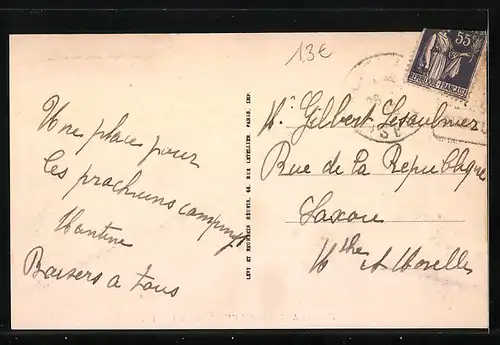 13€
55c
Une place pour
les prochains campings
Mantine
Baisers a tous
LEVY ET NEURDEIN RÉUNIS, 44, RUE LETELLIER, PARIS, IMP.
Mr Gilbert
Rue de la Republique
Laxou
Mthe et Moselle